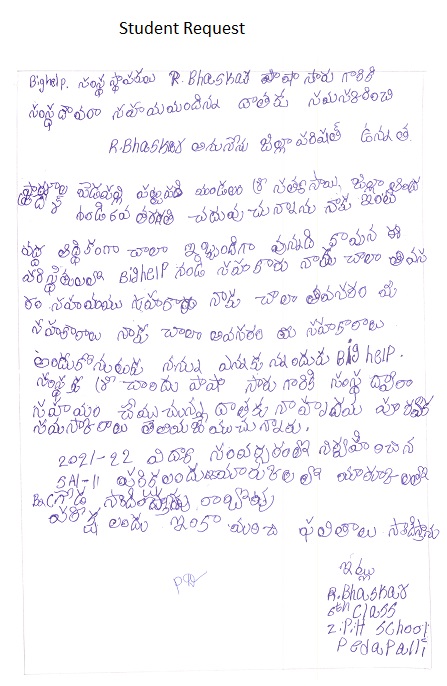 Student Request
Bighelp. సంస్థ స్థాపకులు R. Bhaskar పాషా సారు గారికి
సంస్థ ద్వారా సహాయమందిస్తున్న దాతకు నమస్కరించి
R.Bhaskar అను నేను జిల్లా పరిషత్ ఉన్నత
పాఠశాల పెదపల్లి మండలం జిల్లా
తరగతి చదువుచున్నాను నాకు ఇంటి
వద్ద ఆర్థికంగా చాలా ఇబ్బందిగా వున్నది కావున ఈ
పరిస్థితులలో Bighelp నుండి సహకారం నాకు చాలా అవస
రం సహాయము సహకారం నాకు చాలా అవసరం మీ
సహకారాలు నాకు చాలా అవసరం సహకారాలు
అందుకొనుటకు నన్ను ఎన్నుకున్నందుకు Big help.
సంస్థకు చాంద్ పాషా సారు గారికి సంస్థ ద్వారా
సహాయం చేయుచున్న దాతకు నా హృదయ పూర్వక
నమస్కారాలు తెలియజేయుచున్నాను.
2021-22 విద్యా సంవత్సరంలో నిర్వహించిన
SA1-11 పరీక్షలందు మార్కులలో మార్కులతో
గ్రేడ్ సాధించాను రాబోవు
పరీక్షలందు ఇంకా మంచి ఫలితాలు సాధిస్తాను
ఇట్లు
R.Bhaskar
6th Class
Z.P.H School
Pedapalli